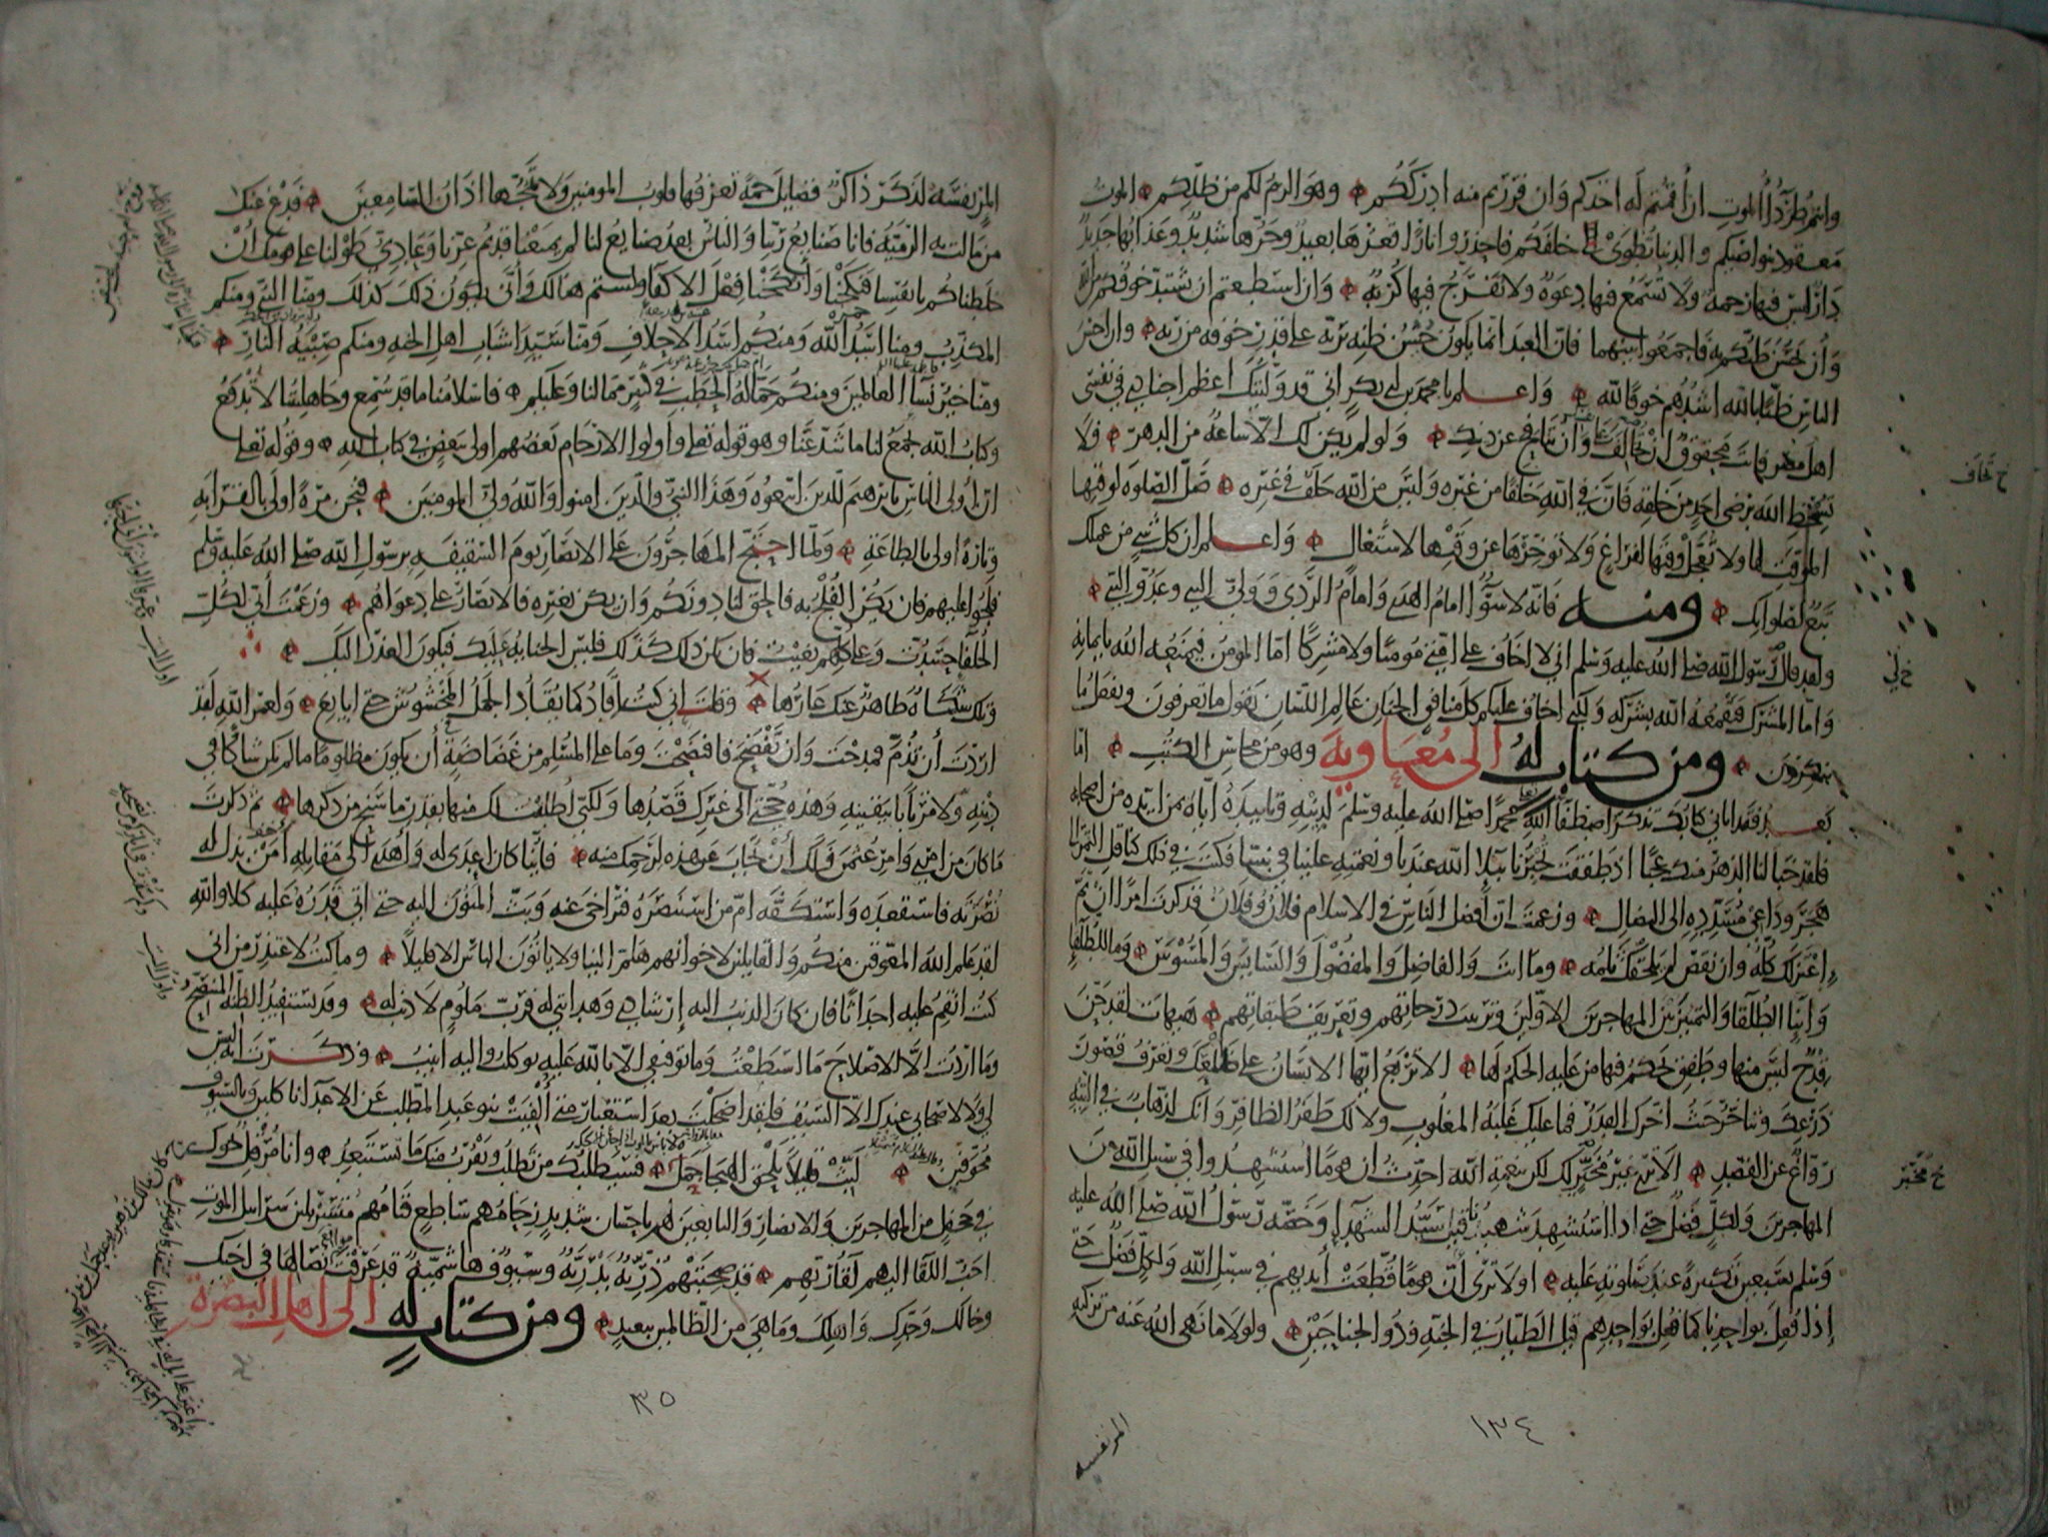 وانتم طرداء الموت ان اقمتم له اخذكم وان فررتم منه ادرككم وهو الزم لكم من ظلكم الموت
معقود بنواصيكم والدنيا تطوى من خلفكم فاحذروا نارا قعرها بعيد وحرها شديد وعذابها جديد
دار ليس فيها رحمة ولا تسمع فيها دعوة ولا تفرج فيها كربة وان استطعتم ان يشتد خوفكم من الله
وان يحسن ظنكم به فاجمعوا بينهما فان العبد انما يكون حسن ظنه بربه على قدر خوفه من ربه وان احسن
الناس ظنا بالله اشدهم خوفا لله واعلم يا محمد بن ابي بكر اني قد وليتك اعظم اجنادي في نفسي
اهل مصر فانت محقوق ان تخالف على نفسك وان تنافح عن دينك ولو لم يكن لك الا ساعة من الدهر فلا
تسخط الله برضى احد من خلقه فان في الله خلفا من غيره وليس من الله خلف في غيره صل الصلوة لوقتها
الموقت لها ولا تعجل وقتها لفراغ ولا توخرها عن وقتها لاشتغال واعلم ان كل شي من عملك
تبع لصلواتك ومنه فانه لا سوا امام الهدى وامام الردى وولي النبي وعدو النبي
ولقد قال رسول الله صلى الله عليه وسلم اني لا اخاف على امتي مومنا ولا مشركا اما المومن فيمنعه الله بايمانه
واما المشرك فيقمعه الله بشركه ولكني اخاف عليكم كل منافق الجنان عالم اللسان يقول ما تعرفون ويفعل ما
تنكرون ومن كتاب له الى معاوية وهو من محاسن الكتب اما
بعد فقد اتاني كتابك تذكر اصطفا الله محمدا صلى الله عليه وسلم لدينه وتاييده اياه بمن ايده من اصحابه
فلقد خبا لنا الدهر منك عجبا اذ طفقت تخبرنا ببلا الله عندنا ونعمته علينا في نبينا فكنت في ذلك كناقل التمر الى
هجر وداعي مسدده الى النضال وزعمت ان افضل الناس في الاسلام فلان وفلان فذكرت امرا ان تم
اعتزلك كله وان نقص لم يلحقك ثلمه وما انت والفاضل والمفضول والسايس والمسوس وما للطلقا
وابنا الطلقا والتمييز بين المهاجرين الاولين وترتيب درجاتهم وتعريف طبقاتهم هيهات لقد حن
قدح ليس منها وطفق يحكم فيها من عليه الحكم لها الا تربع ايها الانسان على ظلعك وتعرف قصور
ذرعك وتتاخر حيث اخرك القدر فما عليك غلبة المغلوب ولا لك ظفر الظافر وانك لذهاب في التيه
رواغ عن القصد الا ترى غير مخبر لك لكن بنعمة الله احدث ان قوما استشهدوا في سبيل الله من
المهاجرين ولكل فضل حتى اذا استشهد شهيدنا قيل سيد الشهدا وخصه رسول الله صلى الله عليه
وسلم بسبعين تكبيرة عند صلوته عليه اولا ترى ان قوما قطعت ايديهم في سبيل الله ولكل فضل حتى
اذا فعل بواحدنا كما فعل بواحدهم قيل الطيار في الجنة وذو الجناحين ولولا ما نهى الله عنه من تزكية
خ تخاف
خ لي
خ مخبر
المر نفسه
١٣٤
المر نفسه لذكر ذاكر فضايل جمة تعرفها قلوب المومنين ولا تمجها اذان السامعين فدع عنك
من مالت به الرمية فانا صنايع ربنا والناس بعد صنايع لنا لم يمنعنا قديم عزنا وعادي طولنا على قومك ان
خلطناكم بانفسنا فنكحنا وانكحنا فعل الاكفا ولستم هناك وانى يكون ذلك كذلك ومنا النبي ومنكم
المكذب ومنا اسد الله ومنكم اسد الاحلاف ومنا سيدا شباب اهل الجنة ومنكم صبية النار
ومنا خير نسا العالمين ومنكم حمالة الحطب في كثير مما لنا وعليكم فاسلامنا ما قد سمع وجاهليتنا لا تدفع
وكتاب الله يجمع لنا ما شذ عنا وهو قوله تعلى واولوا الارحام بعضهم اولى ببعض في كتاب الله وقوله تعلى
ان اولى الناس بابرهيم للذين اتبعوه وهذا النبي والذين امنوا والله ولي المومنين فنحن مرة اولى بالقرابة
وتارة اولى بالطاعة ولما احتج المهاجرون على الانصار يوم السقيفة برسول الله صلى الله عليه وسلم
فلجوا عليهم فان يكن الفلج به فالحق لنا دونكم وان يكن بغيره فالانصار على دعواهم وزعمت اني لكل
الخلفا حسدت وعلى كلهم بغيت فان يكن ذلك كذلك فليس الجناية عليك فيكون العذر اليك
وتلك شكاة ظاهر عنك عارها وقلت اني كنت اقاد كما يقاد الجمل المخشوش حتى ابايع ولعمر الله لقد
اردت ان تذم فمدحت وان تفضح فافتضحت وما على المسلم من غضاضة ان يكون مظلوما ما لم يكن شاكا في
دينه ولا مرتابا بيقينه وهذه حجتي الى غيرك قصدها ولكني اطلقت لك منها بقدر ما سنح من ذكرها ثم ذكرت
ما كان من امري وامر عثمن فلك ان تجاب عن هذه لرحمك منه فاينا كان اعدى له واهدى الى مقاتله امن بذل له
نصرته فاستقعده واستكفه ام من استنصره فتراخى عنه وبث المنون اليه حتى اتى قدره عليه كلا والله
لقد علم الله المعوقين منكم والقايلين لاخوانهم هلم الينا ولا ياتون الباس الا قليلا وما كنت لاعتذر من اني
كنت انقم عليه احداثا فان كان الذنب اليه ارشادي وهدايتي له فرب ملوم لا ذنب له وقد يستفيد الظنة المتنصح
وما اردت الا الاصلاح ما استطعت وما توفيقي الا بالله عليه توكلت واليه انيب وذكرت انه ليس
لي ولا لاصحابي عندك الا السيف فلقد اضحكت بعد استعبار متى الفيت بنو عبد المطلب عن الاعدا ناكلين وبالسيوف
مخوفين لبث قليلا يلحق الهيجا حمل فسيطلبك من تطلب ويقرب منك ما تستبعد وانا مرقل نحوك
في جحفل من المهاجرين والانصار والتابعين لهم باحسان شديد زحامهم ساطع قتامهم متسربلين سرابيل الموت
احب اللقا اليهم لقا ربهم قد صحبتهم ذرية بدرية وسيوف هاشمية قد عرفت نصالها في اخيك
وخالك وجدك واهلك وما هي من الظالمين ببعيد ومن كتاب له الى اهل البصرة
٣٥